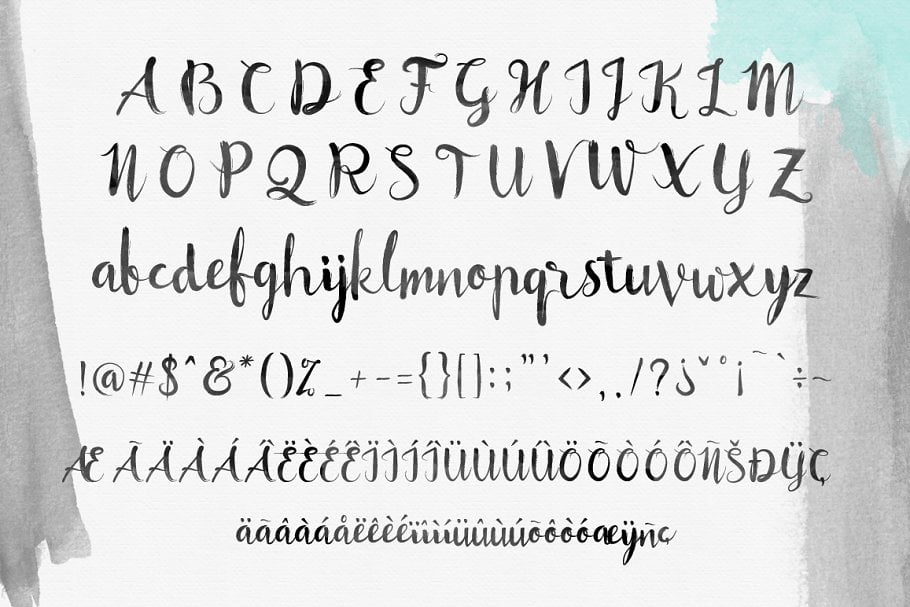 A B C D E F G H I J K L M
N O P Q R S T U V W X Y Z
abcdefghijklmnopqrstuvwxyz
!@#$^&*()%_+-={}[]:;"'<>,./?¿ˇ°¡˜`÷~
Æ ÃÄÀÁÂËÈÉÊÏÌÍÎÜÙÚÛÖÕÒÓÔÑŠÐŸÇ
äãâàáåëêèéïîìíüûùúõôòóæÿñç